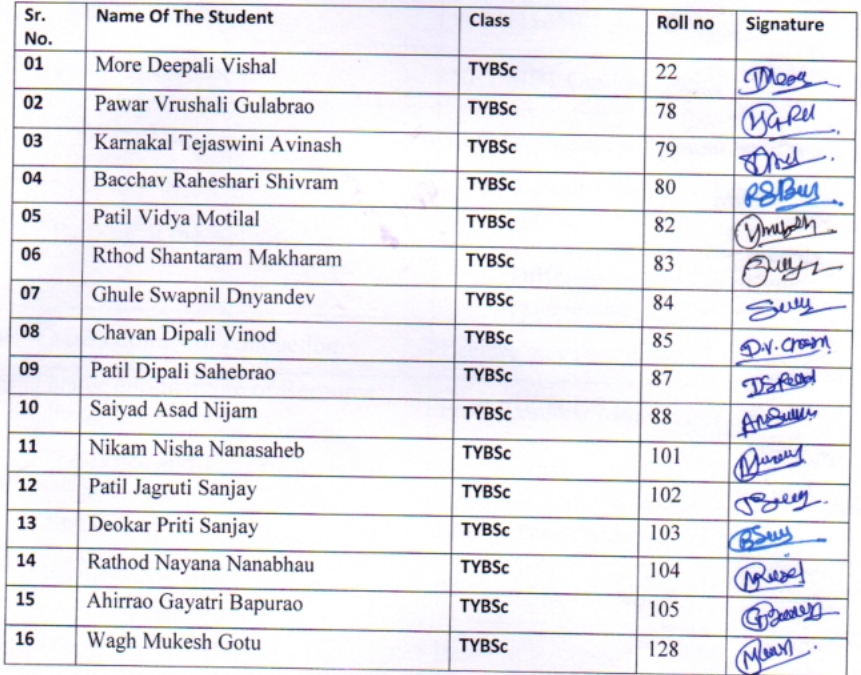 Sr. No. Name Of The Student Class Roll no Signature
01 More Deepali Vishal TYBSc 22
02 Pawar Vrushali Gulabrao TYBSc 78
03 Karnakal Tejaswini Avinash TYBSc 79
04 Bacchav Raheshari Shivram TYBSc 80
05 Patil Vidya Motilal TYBSc 82
06 Rthod Shantaram Makharam TYBSc 83
07 Ghule Swapnil Dnyandev TYBSc 84
08 Chavan Dipali Vinod TYBSc 85
09 Patil Dipali Sahebrao TYBSc 87
10 Saiyad Asad Nijam TYBSc 88
11 Nikam Nisha Nanasaheb TYBSc 101
12 Patil Jagruti Sanjay TYBSc 102
13 Deokar Priti Sanjay TYBSc 103
14 Rathod Nayana Nanabhau TYBSc 104
15 Ahirrao Gayatri Bapurao TYBSc 105
16 Wagh Mukesh Gotu TYBSc 128